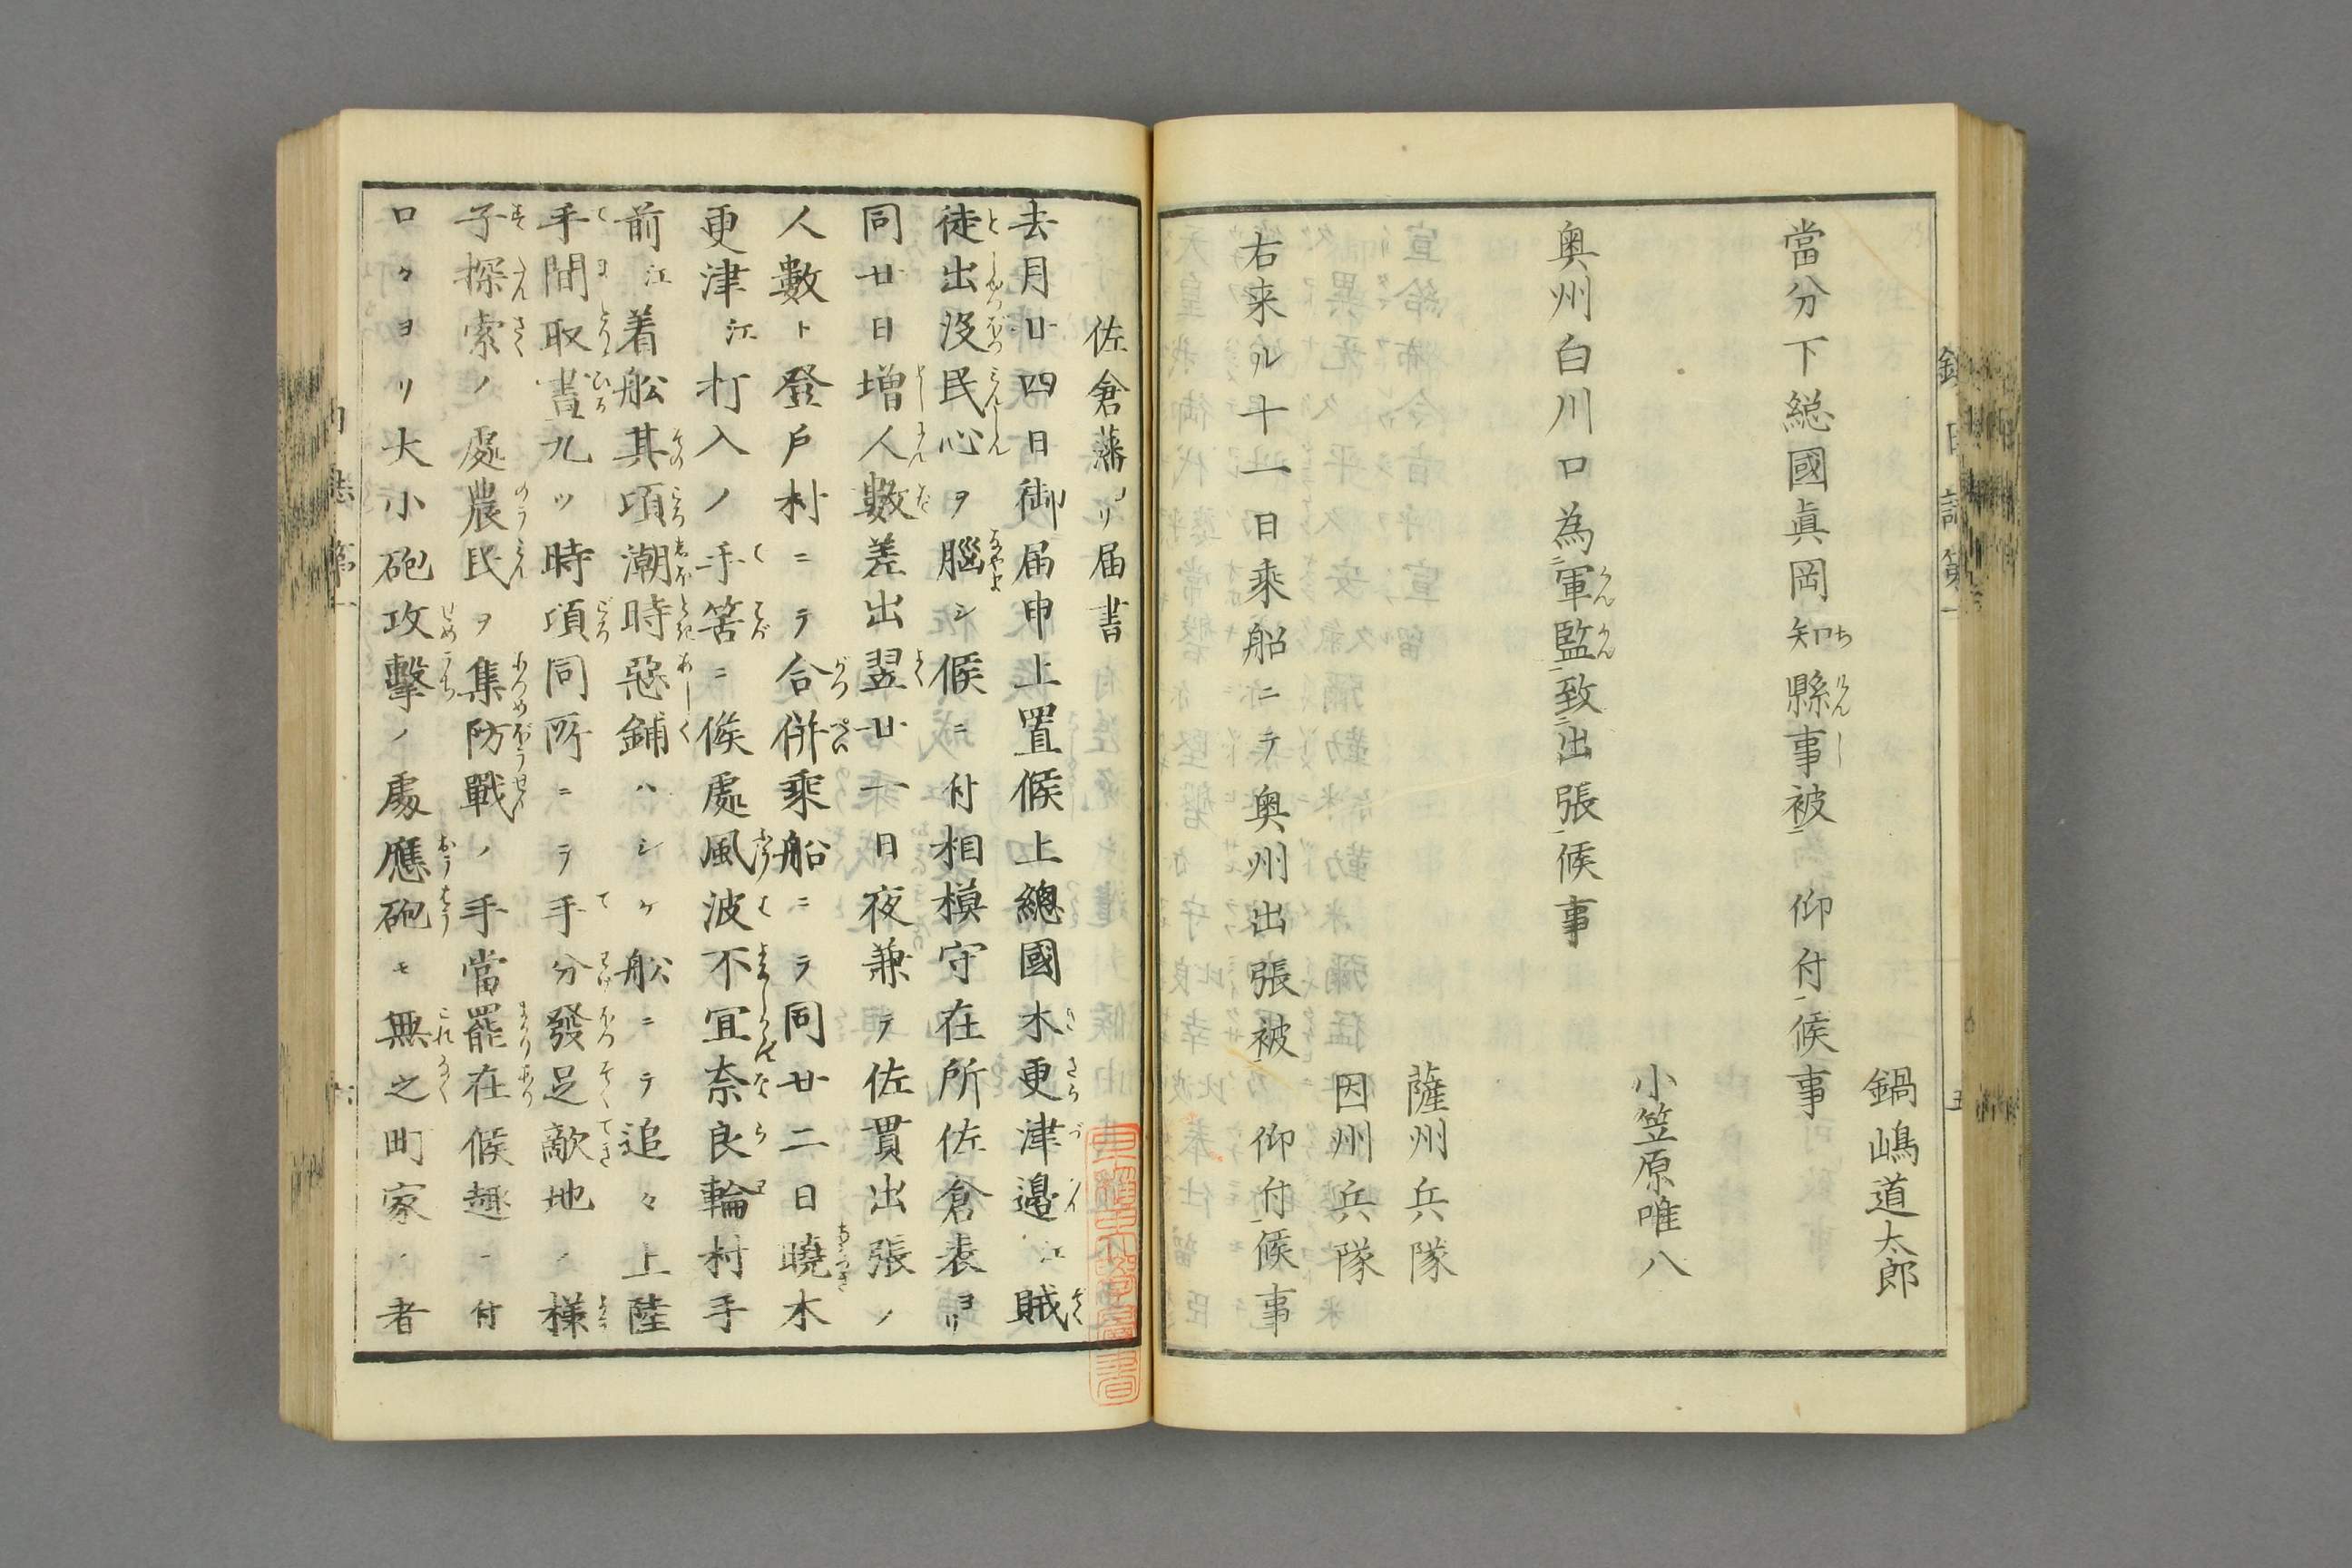 鍋嶋道太郎
當分下総國眞岡知縣事被 仰付候事
小笠原唯八
奥州白川口為軍監致出張候事
薩州兵隊
因州兵隊
右来ル十一日乘船ニテ奥州出張被 仰付候事
佐倉藩ヨリ届書
去月廿四日御届申上置候上總國木更津邉江賊
徒出沒民心ヲ腦シ候ニ付相模守在所佐倉表ヨリ
同廿日増人數差出翌廿一日夜兼テ佐貫出張ノ
人數ト登戸村ニテ合併乘船ニテ同廿二日曉木
更津江打入ノ手筈ニ候處風波不宜奈良輪村手
前江着舩其項潮時惡鋪ハシケ舩ニテ追々上陸
手間取晝九ツ時項同所ニテ手分發足敵地ノ様
子探索ノ處農民ヲ集防戰ノ手當罷在候趣ニ付
口々ヨリ大小砲攻擊ノ處應砲モ無之町家ノ者